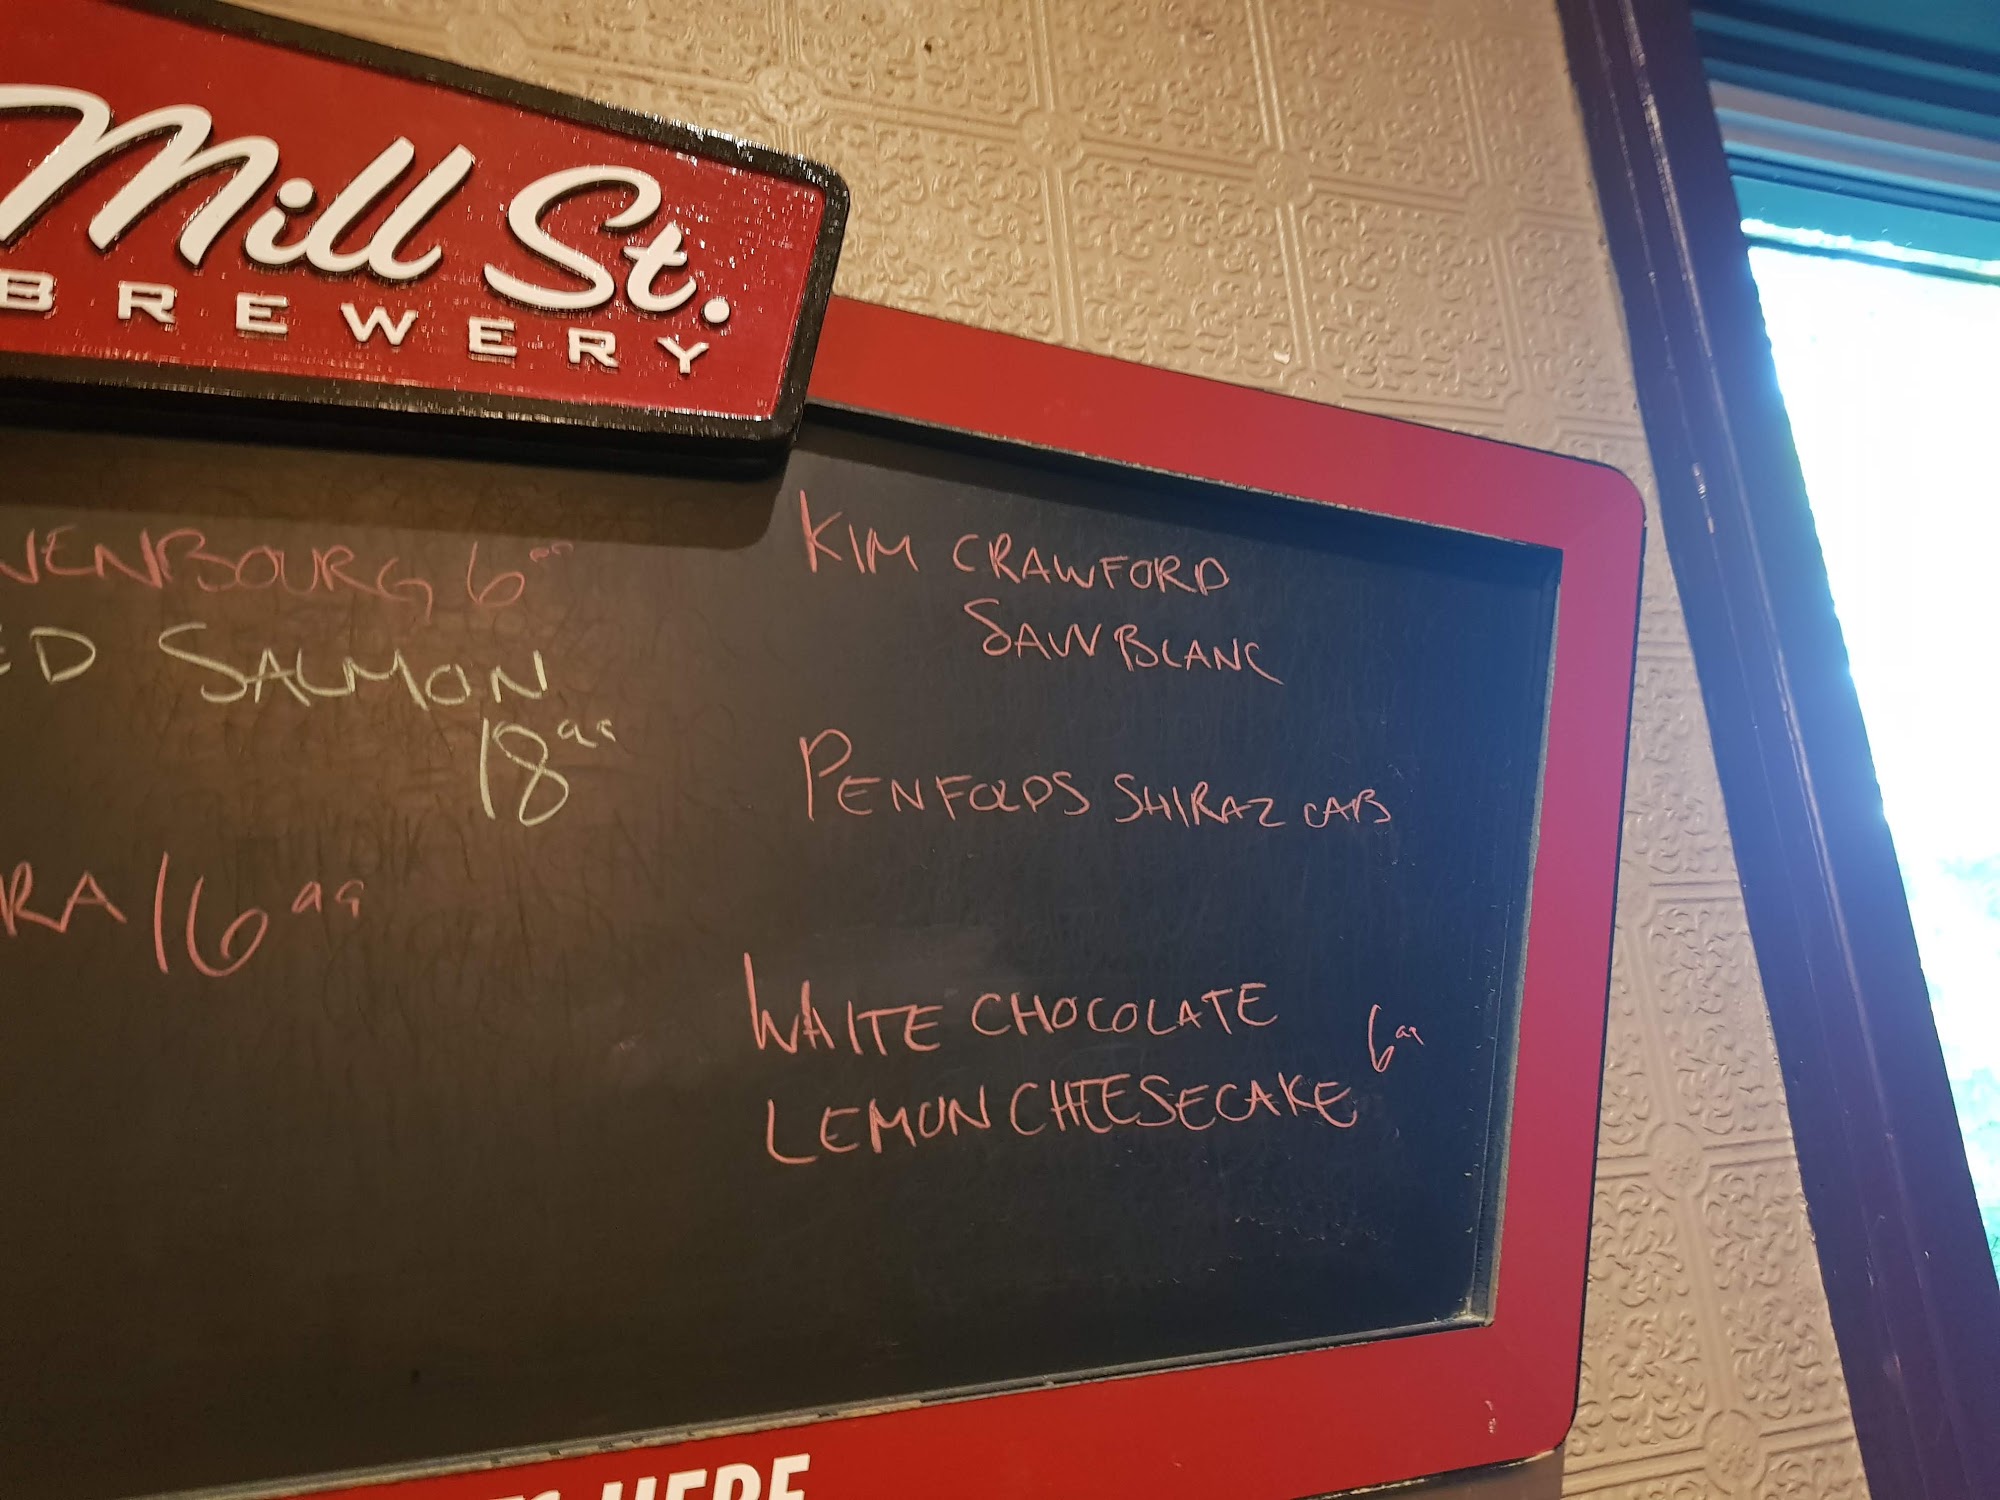 Mill St.
BREWERY
NENBOURG 6⁹⁹
ED SALMON
18⁹⁹
RA 16⁹⁹
KIM CRAWFORD
SAUV BLANC
PENFOLDS SHIRAZ CAB
WHITE CHOCOLATE
6⁹⁹
LEMON CHEESECAKE
HERE